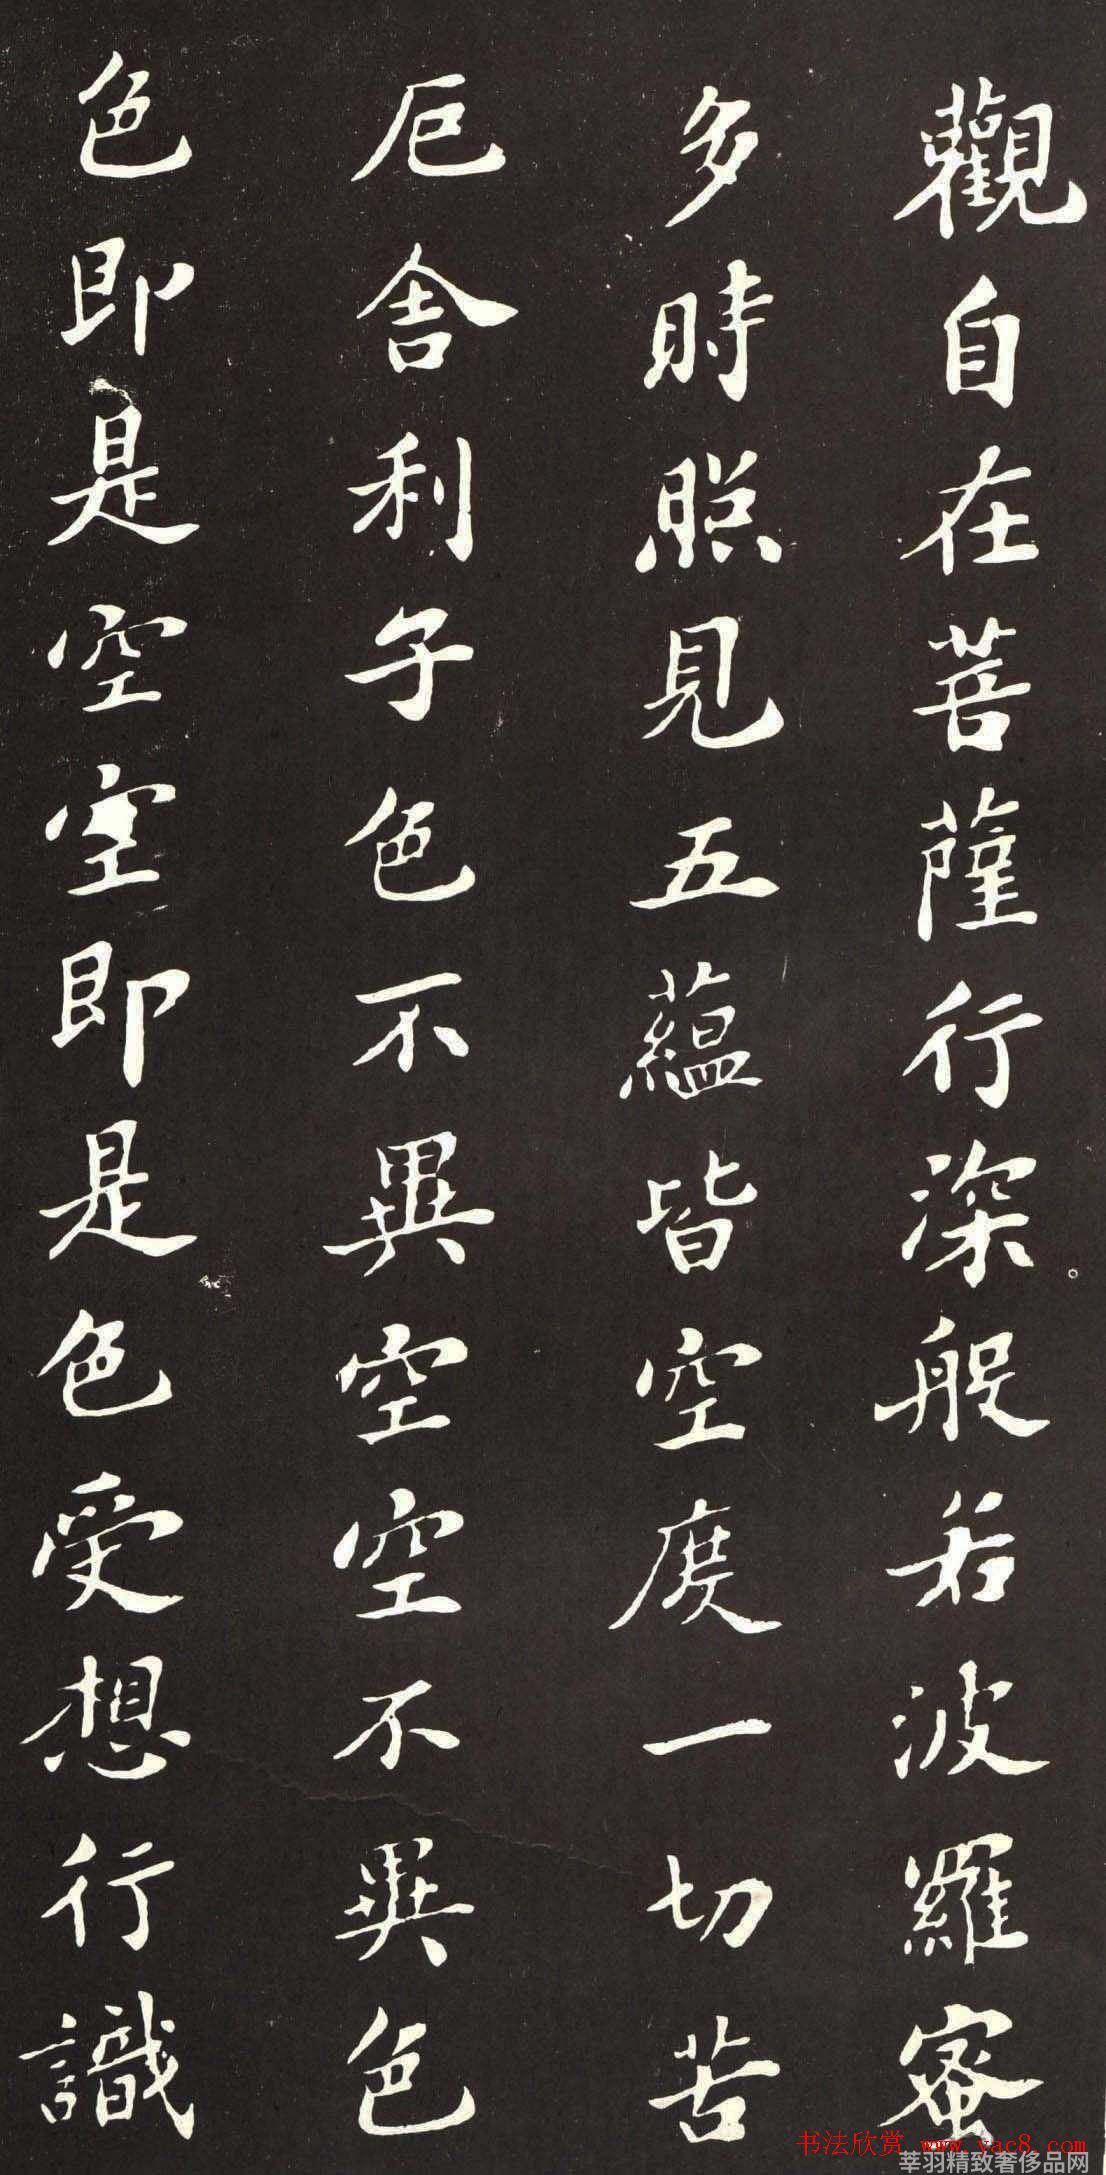 觀自在菩薩行深般若波羅蜜
多時照見五蘊皆空度一切苦
厄舍利子色不異空空不異色
色即是空空即是色受想行識
书法欣赏 www.yac8.com
莘羽精致奢侈品网